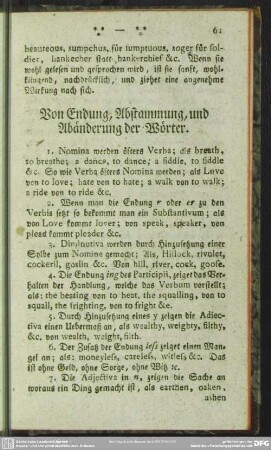 ** — ** 61
beauteous, sumpchus, für sumptuous, soger für sol-
dier, hankecher statt hankerchief &c. Wenn sie
wohl gelesen und gesprochen wird, ist sie sanft, wohl-
klingend, nachdrücklich, und ziehet eine angenehme
Wirkung nach sich.
Von Endung, Abstammung, und
Abänderung der Wörter.
1. Nomina werden öfters Verba; als breath,
to breathe; a dance, to dance; a fiddle, to fiddle
&c. So wie Verba öfters Nomina werden; als Love
von to love; hate von to hate; a walk von to walk;
a ride von to ride &c.
2. Wenn man die Endung r oder er zu den
Verbis setzt so bekommt man ein Substantivum; als
von Love kommt lover; von speak, speaker, von
plead kommt pleader &c.
3. Diminutiva werden durch Hinzusetzung einer
Sylbe zum Nomine gemacht; Als, Hillock, rivulet,
cockeril, goslin &c. Von hill, river, cock, goose.
4. Die Endung ing des Participii, zeiget das Ver-
halten der Handlung, welche das Verbum vorstellt;
als: the beating von to beat, the squalling, von to
squall, the frighting, von to fright &c.
5. Durch Hinzusetzung eines y zeigen die Adjec-
tiva einen Uebermaß an, als wealthy, weighty, filthy,
&c. von wealth, weight, filth.
6. Der Zusatz der Endung less zeiget einen Man-
gel an; als: moneyless, careless, witless &c. Das
ist ohne Geld, ohne Sorge, ohne Witz &c.
7. Die Adjectiva in n, zeigen die Sache an
woraus ein Ding gemacht ist, als earthen, oaken,
ashen